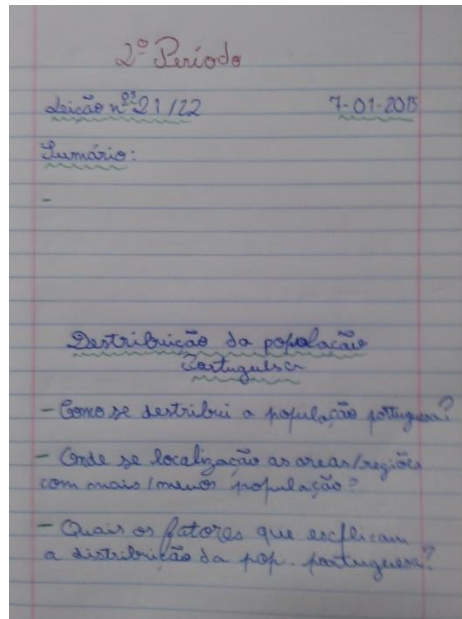 2º Período
Lição nºs 21/22 7-01-2015
Sumário:
-
Destribuição da população
Portuguesa
- Como se destribui a população portuguesa?
- Onde se localização as areas/regiões
com mais/menos população?
- Quais os fatores que escflicam
a distribuição da pop. portuguesa?